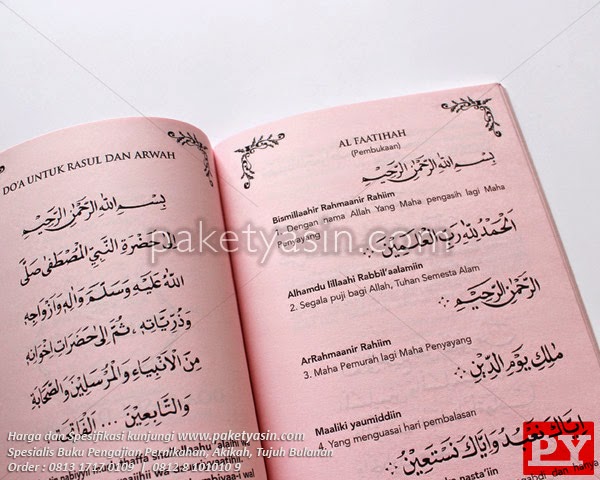 DO'A UNTUK RASUL DAN ARWAH
بِسْمِ اللهِ الرَّحْمٰنِ الرَّحِيْمِ
اِلٰى حَضْرَةِ النَّبِيِّ الْمُصْطَفٰى صَلَّى
اللهُ عَلَيْهِ وَسَلَّمَ وَاٰلِهِ وَاَزْوَاجِهِ
وَذُرِّيَّاتِهِ، ثُمَّ اِلٰى حَضَرَاتِ اِخْوَانِهِ
مِنَ الْاَنْبِيَاءِ وَالْمُرْسَلِيْنَ وَالصَّحَابَةِ
وَالتَّابِعِيْنَ ... الْفَاتِحَة
AL FAATIHAH
(Pembukaan)
بِسْمِ اللهِ الرَّحْمٰنِ الرَّحِيْمِ
Bismillaahir Rahmaanir Rahiim
1. Dengan nama Allah Yang Maha pengasih lagi Maha
Penyayang
اَلْحَمْدُ لِلّٰهِ رَبِّ الْعٰلَمِيْنَ
Alhamdu lillaahi Rabbil'aalamiin
2. Segala puji bagi Allah, Tuhan Semesta Alam
الرَّحْمٰنِ الرَّحِيْمِ
ArRahmaanir Rahiim
3. Maha Pemurah lagi Maha Penyayang
مٰلِكِ يَوْمِ الدِّيْنِ
Maaliki yaumiddiin
4. Yang menguasai hari pembalasan
اِيَّاكَ نَعْبُدُ وَاِيَّاكَ نَسْتَعِيْنُ
nasta'iin
paketyasin.com
Harga dan Spesifikasi kunjungi www.paketyasin.com
Spesialis Buku Pengajian Pernikahan, Akikah, Tujuh Bulanan
Order : 0813 1717 0109 | 0812 8 101010 9
PY